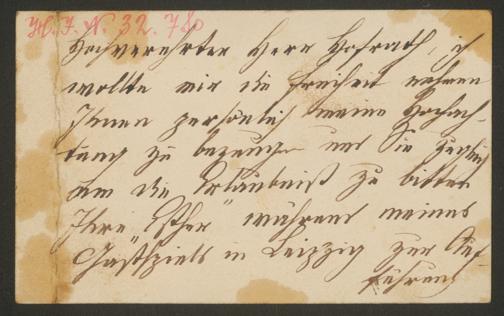 H. I. N. 32.780
Hochverehrter Herr Hofrath, ich
wollte mir die Freiheit nehmen
Ihnen persönlich meine Hochach-
tung zu bezeugen und Sie zugleich
um die Erlaubniß zu bitten
Ihre „Esther“ während meines
Gastspiels in Leipzig zur Auf-
führung